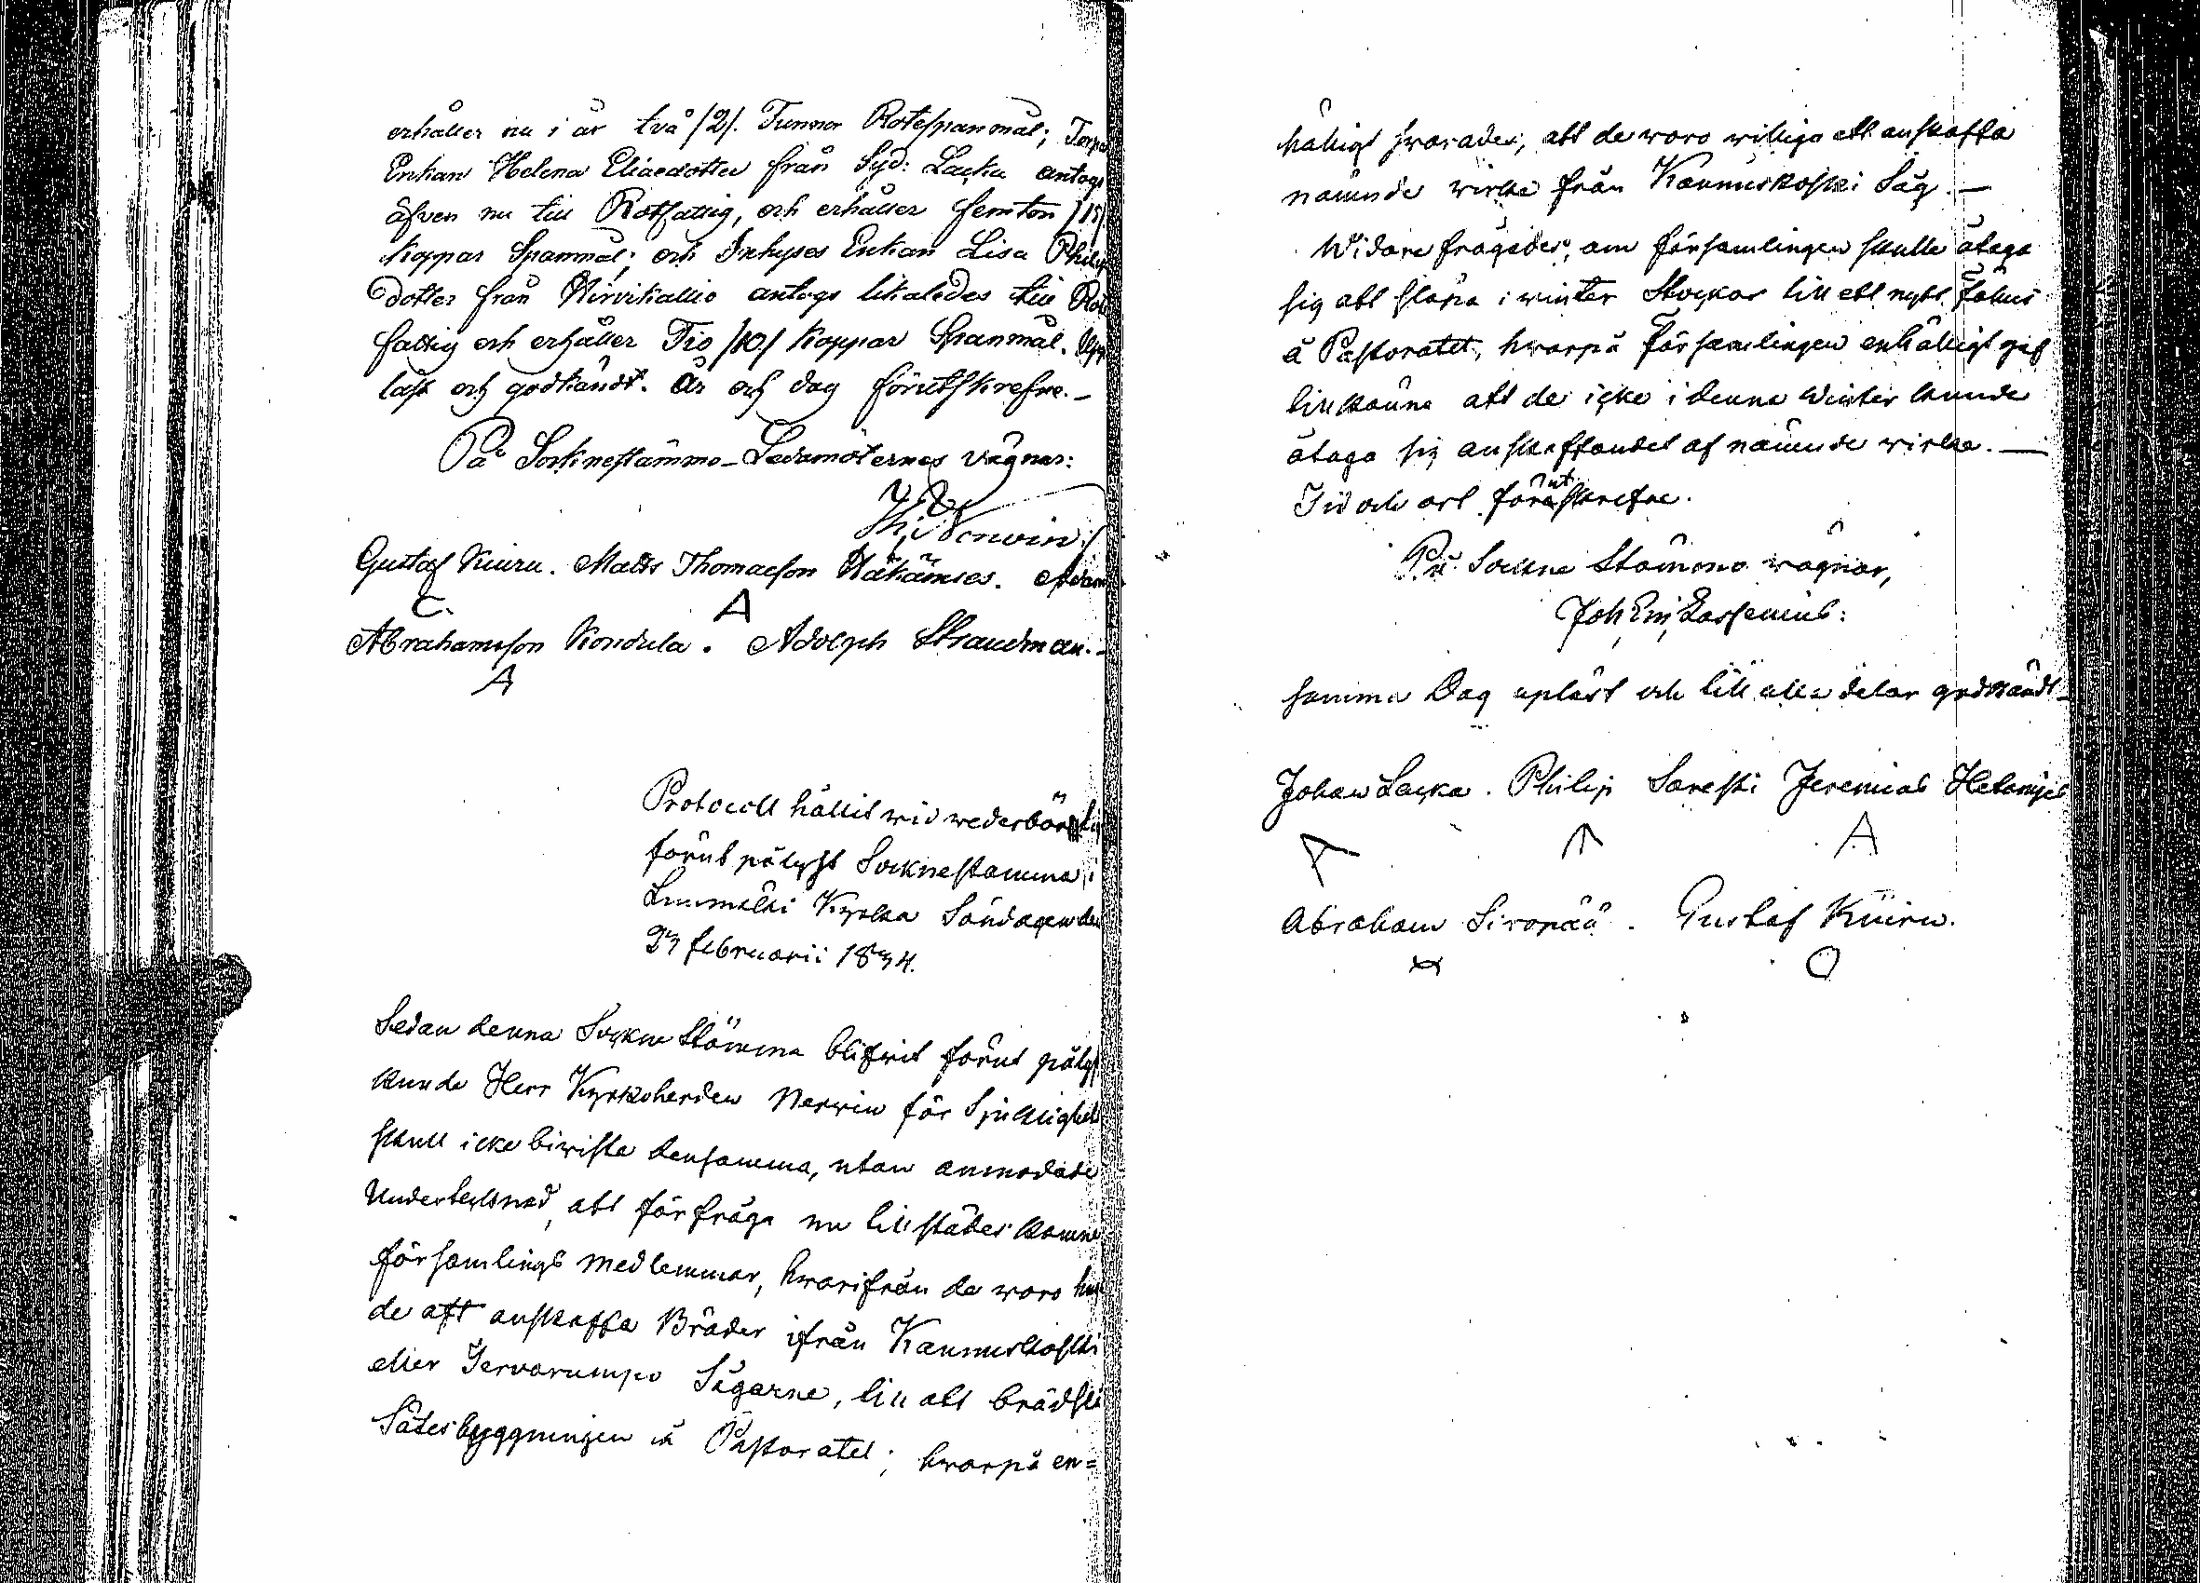 erhåller nu i år två /2/. Tunnor Rotespanmål; Torpa
Enkan Helena Eliaedotter från Syd: Lacka antogs
äfven nu till Rotfattig, och erhåller femton /15/
Kappar Spanmål; och Inhyses Enkan Lisa Philip
dotter från Kirvikallio antogs likaledes till Rot
fattig och erhåller Tio /10/ Kappar Spanmål. Upp
läst och godkändt. År och dag förutskrefne. _
På Socknestämmo-Ledamöternes vägnar:
Nerwin
Gustaf Kiuru. Matts Thomasson Häkämies. Adam
C. A
Abrahamsson Kondula. Adolph Strandman. _
A
Protocoll hållit wid wederbörlig
förut pålyst Socknestämma i
Lummäki Kyrka Söndagen den
23 februarii 1834.
Sedan denna Sockne Stämma blifwit förut pålyst
kunde Herr Kyrkoherden Nerwin för Sjuklighets
skull icke biwista densamma, utan anmodade
Undertecknad, att förfråga nu tillstädes komne
församlings medlemmar, hwarifrån de woro hug
de att anskaffa Bräder ifrån Kannuskoski
eller Jervarumpu Sågarne, till att brädslå
Sätesbyggningen å Pastoratet; hwarpå en=
hälligt swarades; att de woro williga att anskaffa
nämnde wirke från Kannuskoski Såg. —
Widare frågades; om församlingen skulle åtaga
sig att släpa i winter Stockar till ett nytt Fähus
å Pastoratet, hwarpå församlingen enhälligt gaf
tillkänna att de icke i denna Winter kunde
åtaga sig anskaffandet af nämnde wirke. —
Tid och ort förutskrefne.
På Sockne Stämmo wägnar,
Joh Em Lassenius:
samma Dag upläst och till alla delar godkändt _
Johan Lacka. Philip Sareski Jeremias
A
Abraham Sironää. Gustaf Kiuru.